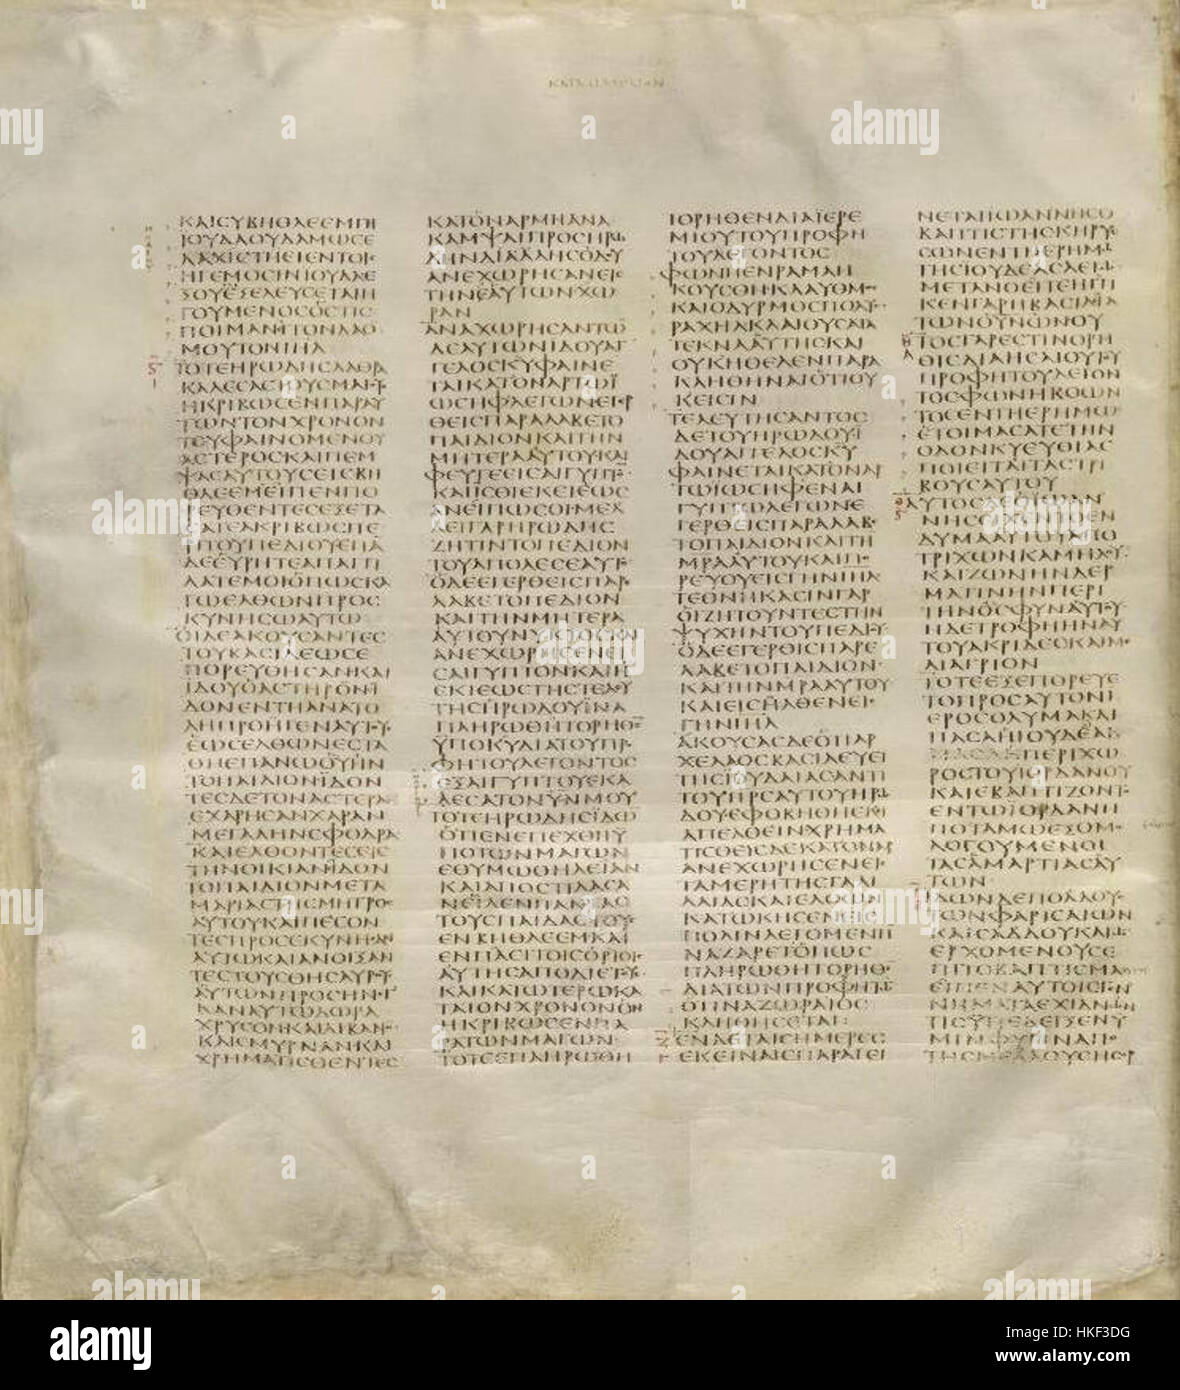 ΚΑΙϹΥΒΗΘΛΕΕΜΓΗ
ΙΟΥΔΑΟΥΔΑΜΩϹΕ
ΛΑΧΙϹΤΗΕΙΕΝΤΟΙϹ
ΗΓΕΜΟϹΙΝΙΟΥΔΑΕ
ΓΟΥΜΕΝΟϹΟϹΤΙϹ
ΠΟΙΜΑΝΙΤΟΝΛΑΟ
ΜΟΥΤΟΝΙΗΛ
ΤΟΤΕΗΡΩΔΗϹΛΑΘΡΑ
ΚΑΛΕϹΑϹΤΟΥϹΜΑΓΟΥϹ
ΗΚΡΙΒΩϹΕΝΠΑΡΑΥ
ΤΩΝΤΟΝΧΡΟΝΟΝ
ΤΟΥΦΑΙΝΟΜΕΝΟΥ
ΑϹΤΕΡΟϹΚΑΙΠΕΜ
ΨΑϹΑΥΤΟΥϹΕΙϹΒΗ
ΘΛΕΕΜΕΙΠΕΝΠΟ
ΡΕΥΘΕΝΤΕϹΕΞΕΤΑ
ϹΑΤΕΑΚΡΙΒΩϹΠΕ
ΡΙΤΟΥΠΕΔΙΟΥΕΠΑ
ΔΕΕΥΡΗΤΕΑΠΑΓΓΙ
ΛΑΤΕΜΟΙΟΠΩϹΚΑ
ΓΩΕΛΘΩΝΠΡΟϹ
ΚΥΝΗϹΩΑΥΤΩ
ΟΙΔΕΑΚΟΥϹΑΝΤΕϹ
ΤΟΥΒΑϹΙΛΕΩϹΕ
ΠΟΡΕΥΘΗϹΑΝΚΑΙ
ΙΔΟΥΟΑϹΤΗΡΟΝΙ
ΔΟΝΕΝΤΗΑΝΑΤΟ
ΛΗΠΡΟΗΓΕΝΑΥΤΟΥϹ
ΕΩϹΕΛΘΩΝΕϹΤΑ
ΘΗΕΠΑΝΩΟΥΗΝ
ΤΟΠΑΙΔΙΟΝΙΔΟΝ
ΤΕϹΔΕΤΟΝΑϹΤΕΡΑ
ΕΧΑΡΗϹΑΝΧΑΡΑΝ
ΜΕΓΑΛΗΝϹΦΟΔΡΑ
ΚΑΙΕΛΘΟΝΤΕϹΕΙϹ
ΤΗΝΟΙΚΙΑΝΙΔΟΝ
ΤΟΠΑΙΔΙΟΝΜΕΤΑ
ΜΑΡΙΑϹΤΗϹΜΗΤΡΟϹ
ΑΥΤΟΥΚΑΙΠΕϹΟΝ
ΤΕϹΠΡΟϹΕΚΥΝΗϹΑΝ
ΑΥΤΩΚΑΙΑΝΟΙΞΑΝ
ΤΕϹΤΟΥϹΘΗϹΑΥΡΟΥϹ
ΑΥΤΩΝΠΡΟϹΗΝΕΓ
ΚΑΝΑΥΤΩΔΩΡΑ
ΧΡΥϹΟΝΚΑΙΛΙΒΑΝΟΝ
ΚΑΙϹΜΥΡΝΑΝΚΑΙ
ΧΡΗΜΑΤΙϹΘΕΝΤΕϹ
ΚΑΤΟΝΑΡΜΗΑΝΑ
ΚΑΜΨΑΙΠΡΟϹΗΡΩ
ΔΗΝΔΙΑΛΛΗϹΟΔΟΥ
ΑΝΕΧΩΡΗϹΑΝΕΙϹ
ΤΗΝΕΑΥΤΩΝΧΩ
ΡΑΝ
ΑΝΑΧΩΡΗϹΑΝΤΩ
ΔΕΑΥΤΩΝΙΔΟΥΑΓ
ΓΕΛΟϹΚΥΦΑΙΝΕ
ΤΑΙΚΑΤΟΝΑΡΤΩΪ
ΩϹΗΦΛΕΓΩΝΕΓΕΡ
ΘΕΙϹΠΑΡΑΛΑΒΕΤΟ
ΠΑΙΔΙΟΝΚΑΙΤΗΝ
ΜΗΤΕΡΑΑΥΤΟΥΚΑΙ
ΦΕΥΓΕΕΙϹΑΙΓΥΠΤΟΝ
ΚΑΙΙϹΘΙΕΚΕΙΕΩϹ
ΑΝΕΙΠΩϹΟΙΜΕΛ
ΛΕΙΓΑΡΗΡΩΔΗϹ
ΖΗΤΙΝΤΟΠΕΔΙΟΝ
ΤΟΥΑΠΟΛΕϹΕΑΥΤΟ
ΟΔΕΕΓΕΡΘΕΙϹΠΑΡΕ
ΛΑΒΕΤΟΠΕΔΙΟΝ
ΚΑΙΤΗΝΜΗΤΕΡΑ
ΑΥΤΟΥΝΥΚΤΟϹΚΑΙ
ΑΝΕΧΩΡΗϹΕΝΕΙ
ϹΑΙΓΥΠΤΟΝΚΑΙΗ
ΕΚΙΕΩϹΤΗϹΤΕΛΕΥ
ΤΗϹΗΡΩΔΟΥΙΝΑ
ΠΛΗΡΩΘΗΤΟΡΗΘΕΝ
ΫΠΟΚΥΔΙΑΤΟΥΠΡΟ
ΦΗΤΟΥΛΕΓΟΝΤΟϹ
ΕΞΑΙΓΥΠΤΟΥΕΚΑ
ΛΕϹΑΤΟΝΥΝΜΟΥ
ΤΟΤΕΗΡΩΔΗϹΙΔΩ
ΟΤΙΕΝΕΠΕΧΘΗΥ
ΠΟΤΩΝΜΑΓΩΝ
ΕΘΥΜΩΘΗΛΕΙΑΝ
ΚΑΙΑΠΟϹΤΙΛΑϹΑ
ΝΕΙΛΕΝΠΑΝΤΑϹ
ΤΟΥϹΠΑΙΔΑϹΤΟΥϹ
ΕΝΒΗΘΛΕΕΜΚΑΙ
ΕΝΠΑϹΙΤΟΙϹΟΡΙΟΙϹ
ΑΥΤΗϹΑΠΟΔΙΕΤΟΥϹ
ΚΑΙΚΑΤΩΤΕΡΩΚΑ
ΤΑΤΟΝΧΡΟΝΟΝΟΝ
ΗΚΡΙΒΩϹΕΝΠΑ
ΡΑΤΩΝΜΑΓΩΝ
ΤΟΤΕΕΠΛΗΡΩΘΗ
ΤΟΡΗΘΕΝΔΙΑΪΕΡΕ
ΜΙΟΥΤΟΥΠΡΟΦΗ
ΤΟΥΛΕΓΟΝΤΟϹ
ΦΩΝΗΕΝΡΑΜΑΗ
ΚΟΥϹΘΗΚΛΑΥΘΜΟϹ
ΚΑΙΟΔΥΡΜΟϹΠΟΛΥϹ
ΡΑΧΗΛΚΛΑΙΟΥϹΑΤΑ
ΤΕΚΝΑΑΥΤΗϹΚΑΙ
ΟΥΚΗΘΕΛΕΝΠΑΡΑ
ΚΛΗΘΗΝΑΙΟΤΙΟΥ
ΚΕΙϹΙΝ
ΤΕΛΕΥΤΗϹΑΝΤΟϹ
ΔΕΤΟΥΗΡΩΔΟΥΙ
ΔΟΥΑΓΓΕΛΟϹΚΥ
ΦΑΙΝΕΤΑΙΚΑΤΟΝΑΡ
ΤΩΙΩϹΗΦΕΝΑΙ
ΓΥΠΤΩΛΕΓΩΝΕ
ΓΕΡΘΕΙϹΠΑΡΑΛΑΒΕ
ΤΟΠΑΙΔΙΟΝΚΑΙΤΗ
ΜΡΑΑΥΤΟΥΚΑΙΠΟ
ΡΕΥΟΥΕΙϹΓΗΝΙΗΛ
ΤΕΘΝΗΚΑϹΙΝΓΑΡ
ΟΙΖΗΤΟΥΝΤΕϹΤΗΝ
ΨΥΧΗΝΤΟΥΠΕΔΙΟΥ
ΟΔΕΕΓΕΡΘΕΙϹΠΑΡΕ
ΛΑΒΕΤΟΠΑΙΔΙΟΝ
ΚΑΙΤΗΝΜΡΑΑΥΤΟΥ
ΚΑΙΕΙϹΗΛΘΕΝΕΙϹ
ΓΗΝΙΗΛ
ΑΚΟΥϹΑϹΔΕΟΤΙΑΡ
ΧΕΛΑΟϹΒΑϹΙΛΕΥΕΙ
ΤΗϹΙΟΥΔΑΙΑϹΑΝΤΙ
ΤΟΥΠΡϹΑΥΤΟΥΗΡΩ
ΔΟΥΕΦΟΒΗΘΗΕΚΙ
ΑΠΕΛΘΕΙΝΧΡΗΜΑ
ΤΙϹΘΕΙϹΔΕΚΑΤΟΝΑΡ
ΑΝΕΧΩΡΗϹΕΝΕΙϹ
ΤΑΜΕΡΗΤΗϹΓΑΛΙ
ΛΑΙΑϹΚΑΙΕΛΘΩΝ
ΚΑΤΩΚΗϹΕΝΕΙϹ
ΠΟΛΙΝΛΕΓΟΜΕΝΗ
ΝΑΖΑΡΕΤΟΠΩϹ
ΠΛΗΡΩΘΗΤΟΡΗΘΕΝ
ΔΙΑΤΩΝΠΡΟΦΗΤΩ
ΟΤΙΝΑΖΩΡΑΙΟϹ
ΚΛΗΘΗϹΕΤΑΙ
ΕΝΔΕΤΑΙϹΗΜΕΡΑΙϹ
ΕΚΕΙΝΑΙϹΠΑΡΑΓΕΙ
ΝΕΤΑΙΙΩΑΝΝΗϹΟ
ΒΑΠΤΙϹΤΗϹΚΗΡΥϹ
ϹΩΝΕΝΤΗΕΡΗΜΩ
ΤΗϹΙΟΥΔΕΑϹΛΕΓΩ
ΜΕΤΑΝΟΕΙΤΕΗΓΓΙ
ΚΕΝΓΑΡΗΒΑϹΙΛΙΑ
ΤΩΝΟΥΝΩΝΟΥ
ΤΟϹΓΑΡΕϹΤΙΝΟΡΗ
ΘΙϹΔΙΑΗϹΑΙΟΥΤΟΥ
ΠΡΟΦΗΤΟΥΛΕΓΟΝ
ΤΟϹΦΩΝΗΒΟΩΝ
ΤΟϹΕΝΤΗΕΡΗΜΩ
ΕΤΟΙΜΑϹΑΤΕΤΗΝ
ΟΔΟΝΚΥΕΥΘΙΑϹ
ΠΟΙΕΙΤΑΙΤΑϹΤΡΙ
ΒΟΥϹΑΥΤΟΥ
ΑΥΤΟϹΔΕΟΙΩΑΝ
ΝΗϹΕΙΧΕΝΤΟΕΝ
ΔΥΜΑΑΥΤΟΥΑΠΟ
ΤΡΙΧΩΝΚΑΜΗΛΟΥ
ΚΑΙΖΩΝΗΝΔΕΡ
ΜΑΤΙΝΗΝΠΕΡΙ
ΤΗΝΟϹΦΥΝΑΥΤΟΥ
ΗΔΕΤΡΟΦΗΗΝΑΥ
ΤΟΥΑΚΡΙΔΕϹΚΑΙΜΕ
ΛΙΑΓΡΙΟΝ
ΤΟΤΕΕΞΕΠΟΡΕΥΕ
ΤΟΠΡΟϹΑΥΤΟΝΙ
ΕΡΟϹΟΛΥΜΑΚΑΙ
ΠΑϹΑΗΙΟΥΔΕΑΚ
ΠΕΡΙΧΩ
ΡΟϹΤΟΥΙΟΡΔΑΝΟΥ
ΚΑΙΕΒΑΠΤΙΖΟΝΤΟ
ΕΝΤΩΙΟΡΔΑΝΗ
ΠΟΤΑΜΩΕΞΟΜΟ
ΛΟΓΟΥΜΕΝΟΙ
ΤΑϹΑΜΑΡΤΙΑϹΑΥ
ΤΩΝ
ΙΔΩΝΔΕΠΟΛΛΟΥϹ
ΤΩΝΦΑΡΙϹΑΙΩΝ
ΚΑΙϹΑΔΔΟΥΚΑΙΩ
ΕΡΧΟΜΕΝΟΥϹΕ
ΠΙΤΟΒΑΠΤΙϹΜΑ
ΕΙΠΕΝΑΥΤΟΙϹΓΕΝ
ΝΗΜΑΤΑΕΧΙΔΝΩΝ
ΤΙϹΥΠΕΔΕΙΞΕΝΥ
ΜΙΝΦΥΓΙΝΑΠΟ
ΤΗϹΜΕΛΛΟΥϹΗϹΟΡ
alamy
Image ID: HKF3DG
www.alamy.com